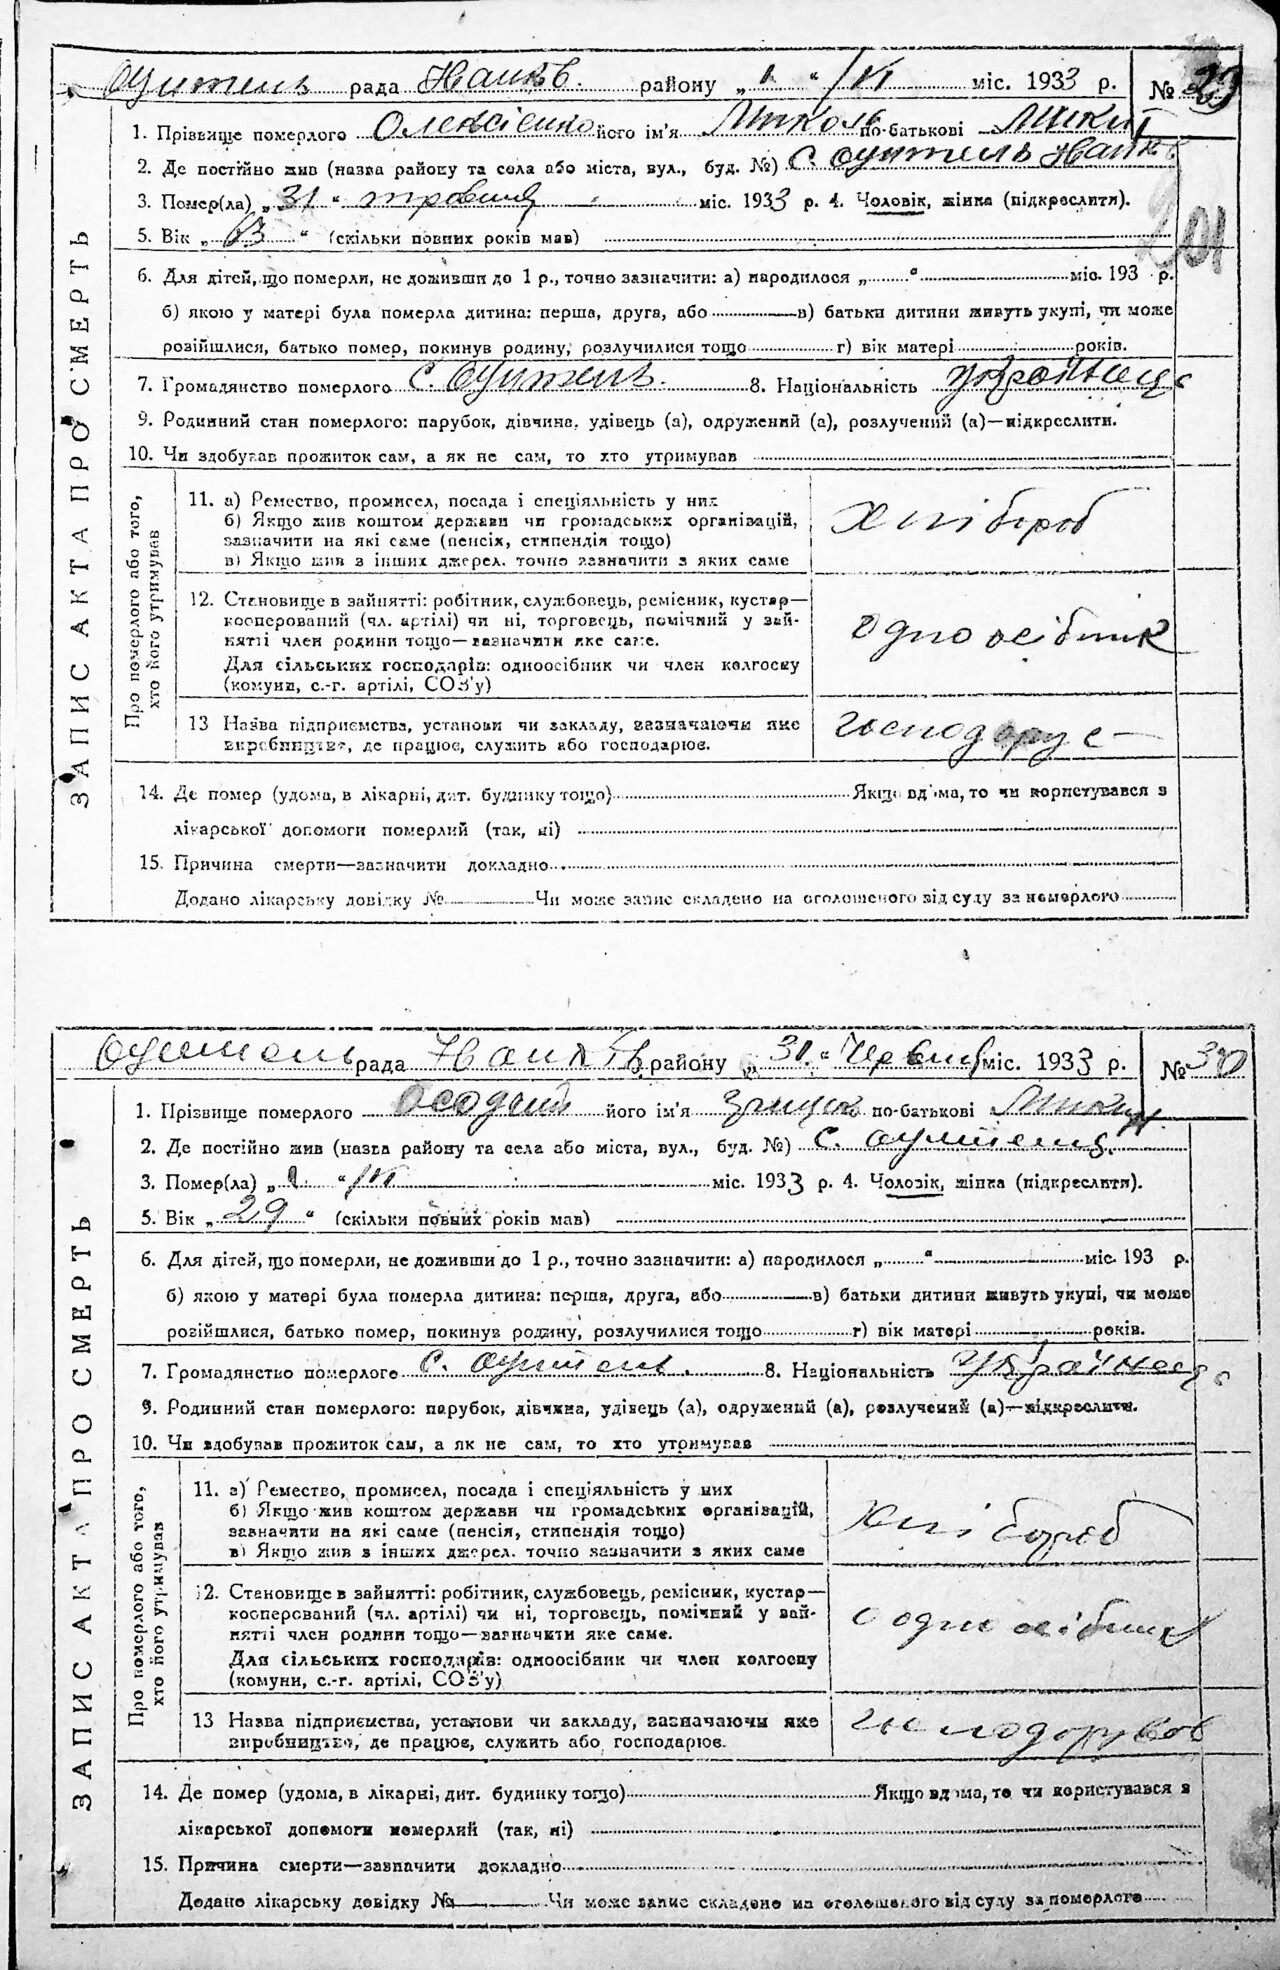 Оцитель рада Наньк. району „ 1 “ /VI міс. 1933 р. № 29
1. Прізвище померлого Олексієнко його ім'я Микола по-батькові Микит
2. Де постійно жив (назва району та села або міста, вул., буд. №) с.
3. Помер(ла) „ 31 “ травня міс. 1933 р. 4. Чоловік, жінка (підкреслити).
201
5. Вік „ 63 “ (скільки повних років мав)
6. Для дітей, що померли, не доживши до 1 р., точно зазначити: а) народилося „ “ міс. 193 р.
б) якою у матері була померла дитина: перша, друга, або в) батьки дитини живуть укупі, чи може
розійшлися, батько помер, покинув родину, розлучилися тощо г) вік матері років.
7. Громадянство померлого с. 8. Національність українец
9. Родинний стан померлого: парубок, дівчина, удівець (а), одружений (а), розлучений (а)—підкреслити.
10. Чи здобував прожиток сам, а як не сам, то хто утримував
ЗАПИС АКТА ПРО СМЕРТЬ
Про померлого або того,
хто його утримував
11. а) Ремество, промисел, посада і спеціяльність у них
б) Якщо жив коштом держави чи громадських організацій,
зазначити на які саме (пенсія, стипендія тощо)
в) Якщо жив з інших джерел. точно зазначити з яких саме
хлібороб
12. Становище в зайнятті: робітник, службовець, ремісник, кустар—
кооперований (чл. артілі) чи ні, торговець, помічний у зай-
нятті член родини тощо—зазначити яке саме.
Для сільських господарів: одноосібник чи член колгоспу
(комуни, с.-г. артілі, СОЗ'у)
одноосібник
13 Назва підприємства, установи чи закладу, зазначаючи яке
виробництво, де працює, служить або господарює.
господарує
14. Де помер (удома, в лікарні, дит. будинку тощо) Якщо вдома, то чи користувався з
лікарської допомоги померлий (так, ні)
15. Причина смерти—зазначити докладно
Додано лікарську довідку № Чи може запис складено на оголошеного від суду за померлого
рада району „ 31 “ Червня міс. 1933 р. № 30
1. Прізвище померлого Осадчий його ім'я Грицько по-батькові Микит
2. Де постійно жив (назва району та села або міста, вул., буд. №) с.
3. Помер(ла) „ 1 “ /VI міс. 1933 р. 4. Чоловік, жінка (підкреслити).
5. Вік „ 29 “ (скільки повних років мав)
6. Для дітей, що померли, не доживши до 1 р., точно зазначити: а) народилося „ “ міс. 193 р.
б) якою у матері була померла дитина: перша, друга, або в) батьки дитини живуть укупі, чи може
розійшлися, батько помер, покинув родину, розлучилися тощо г) вік матері років.
7. Громадянство померлого с. 8. Національність українец
9. Родинний стан померлого: парубок, дівчина, удівець (а), одружений (а), розлучений (а)—підкреслити.
10. Чи здобував прожиток сам, а як не сам, то хто утримував
ЗАПИС АКТА ПРО СМЕРТЬ
Про померлого або того,
хто його утримував
11. а) Ремество, промисел, посада і спеціяльність у них
б) Якщо жив коштом держави чи громадських організацій,
зазначити на які саме (пенсія, стипендія тощо)
в) Якщо жив з інших джерел. точно зазначити з яких саме
хлібороб
12. Становище в зайнятті: робітник, службовець, ремісник, кустар—
кооперований (чл. артілі) чи ні, торговець, помічний у зай-
нятті член родини тощо—зазначити яке саме.
Для сільських господарів: одноосібник чи член колгоспу
(комуни, с.-г. артілі, СОЗ'у)
одноосібник
13 Назва підприємства, установи чи закладу, зазначаючи яке
виробництво, де працює, служить або господарює.
господарував
14. Де помер (удома, в лікарні, дит. будинку тощо) Якщо вдома, то чи користувався з
лікарської допомоги померлий (так, ні)
15. Причина смерти—зазначити докладно
Додано лікарську довідку № Чи може запис складено на оголошеного від суду за померлого